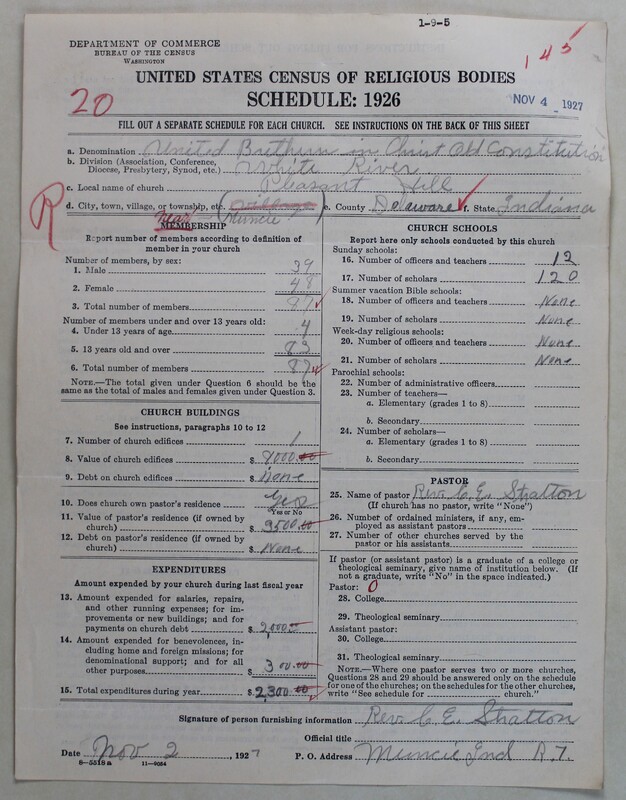 1-9-5
DEPARTMENT OF COMMERCE
BUREAU OF THE CENSUS
WASHINGTON
145
UNITED STATES CENSUS OF RELIGIOUS BODIES
20
SCHEDULE: 1926
NOV 4 1927
FILL OUT A SEPARATE SCHEDULE FOR EACH CHURCH. SEE INSTRUCTIONS ON THE BACK OF THIS SHEET
a. Denomination United Brethren in Christ Old Constitution
b. Division (Association, Conference, Diocese, Presbytery, Synod, etc.) White River
c. Local name of church Pleasant Hill
d. City, town, village, or township, etc. (Village) near Muncie e. County Delaware f. State Indiana
R
MEMBERSHIP
Report number of members according to definition of member in your church
Number of members, by sex:
1. Male 39
2. Female 48
3. Total number of members 87
Number of members under and over 13 years old:
4. Under 13 years of age 4
5. 13 years old and over 83
6. Total number of members 87
NOTE.—The total given under Question 6 should be the same as the total of males and females given under Question 3.
CHURCH BUILDINGS
See instructions, paragraphs 10 to 12
7. Number of church edifices 1
8. Value of church edifices $ 9000.00
9. Debt on church edifices $ None
10. Does church own pastor's residence Yes
Yes or No
11. Value of pastor's residence (if owned by church) $ 3500.00
12. Debt on pastor's residence (if owned by church) $ None
EXPENDITURES
Amount expended by your church during last fiscal year
13. Amount expended for salaries, repairs, and other running expenses; for improvements or new buildings; and for payments on church debt $ 2,000.00
14. Amount expended for benevolences, including home and foreign missions; for denominational support; and for all other purposes $ 300.00
15. Total expenditures during year $ 2,300.00
CHURCH SCHOOLS
Report here only schools conducted by this church
Sunday schools:
16. Number of officers and teachers 12
17. Number of scholars 120
Summer vacation Bible schools:
18. Number of officers and teachers None
19. Number of scholars None
Week-day religious schools:
20. Number of officers and teachers None
21. Number of scholars None
Parochial schools:
22. Number of administrative officers
23. Number of teachers—
a. Elementary (grades 1 to 8)
b. Secondary
24. Number of scholars—
a. Elementary (grades 1 to 8)
b. Secondary
PASTOR
25. Name of pastor Rev. C. E. Stratton
(If church has no pastor, write "None")
26. Number of ordained ministers, if any, employed as assistant pastors
27. Number of other churches served by the pastor or his assistants
If pastor (or assistant pastor) is a graduate of a college or theological seminary, give name of institution below. (If not a graduate, write "No" in the space indicated.)
Pastor: 0
28. College
29. Theological seminary
Assistant pastor:
30. College
31. Theological seminary
NOTE.—Where one pastor serves two or more churches, Questions 28 and 29 should be answered only on the schedule for one of the churches; on the schedules for the other churches, write "See schedule for church."
Signature of person furnishing information Rev. C. E. Stratton
Official title
Date Nov 2, 1927 P. O. Address Muncie Ind R. 7.
8-5518a 11-9064